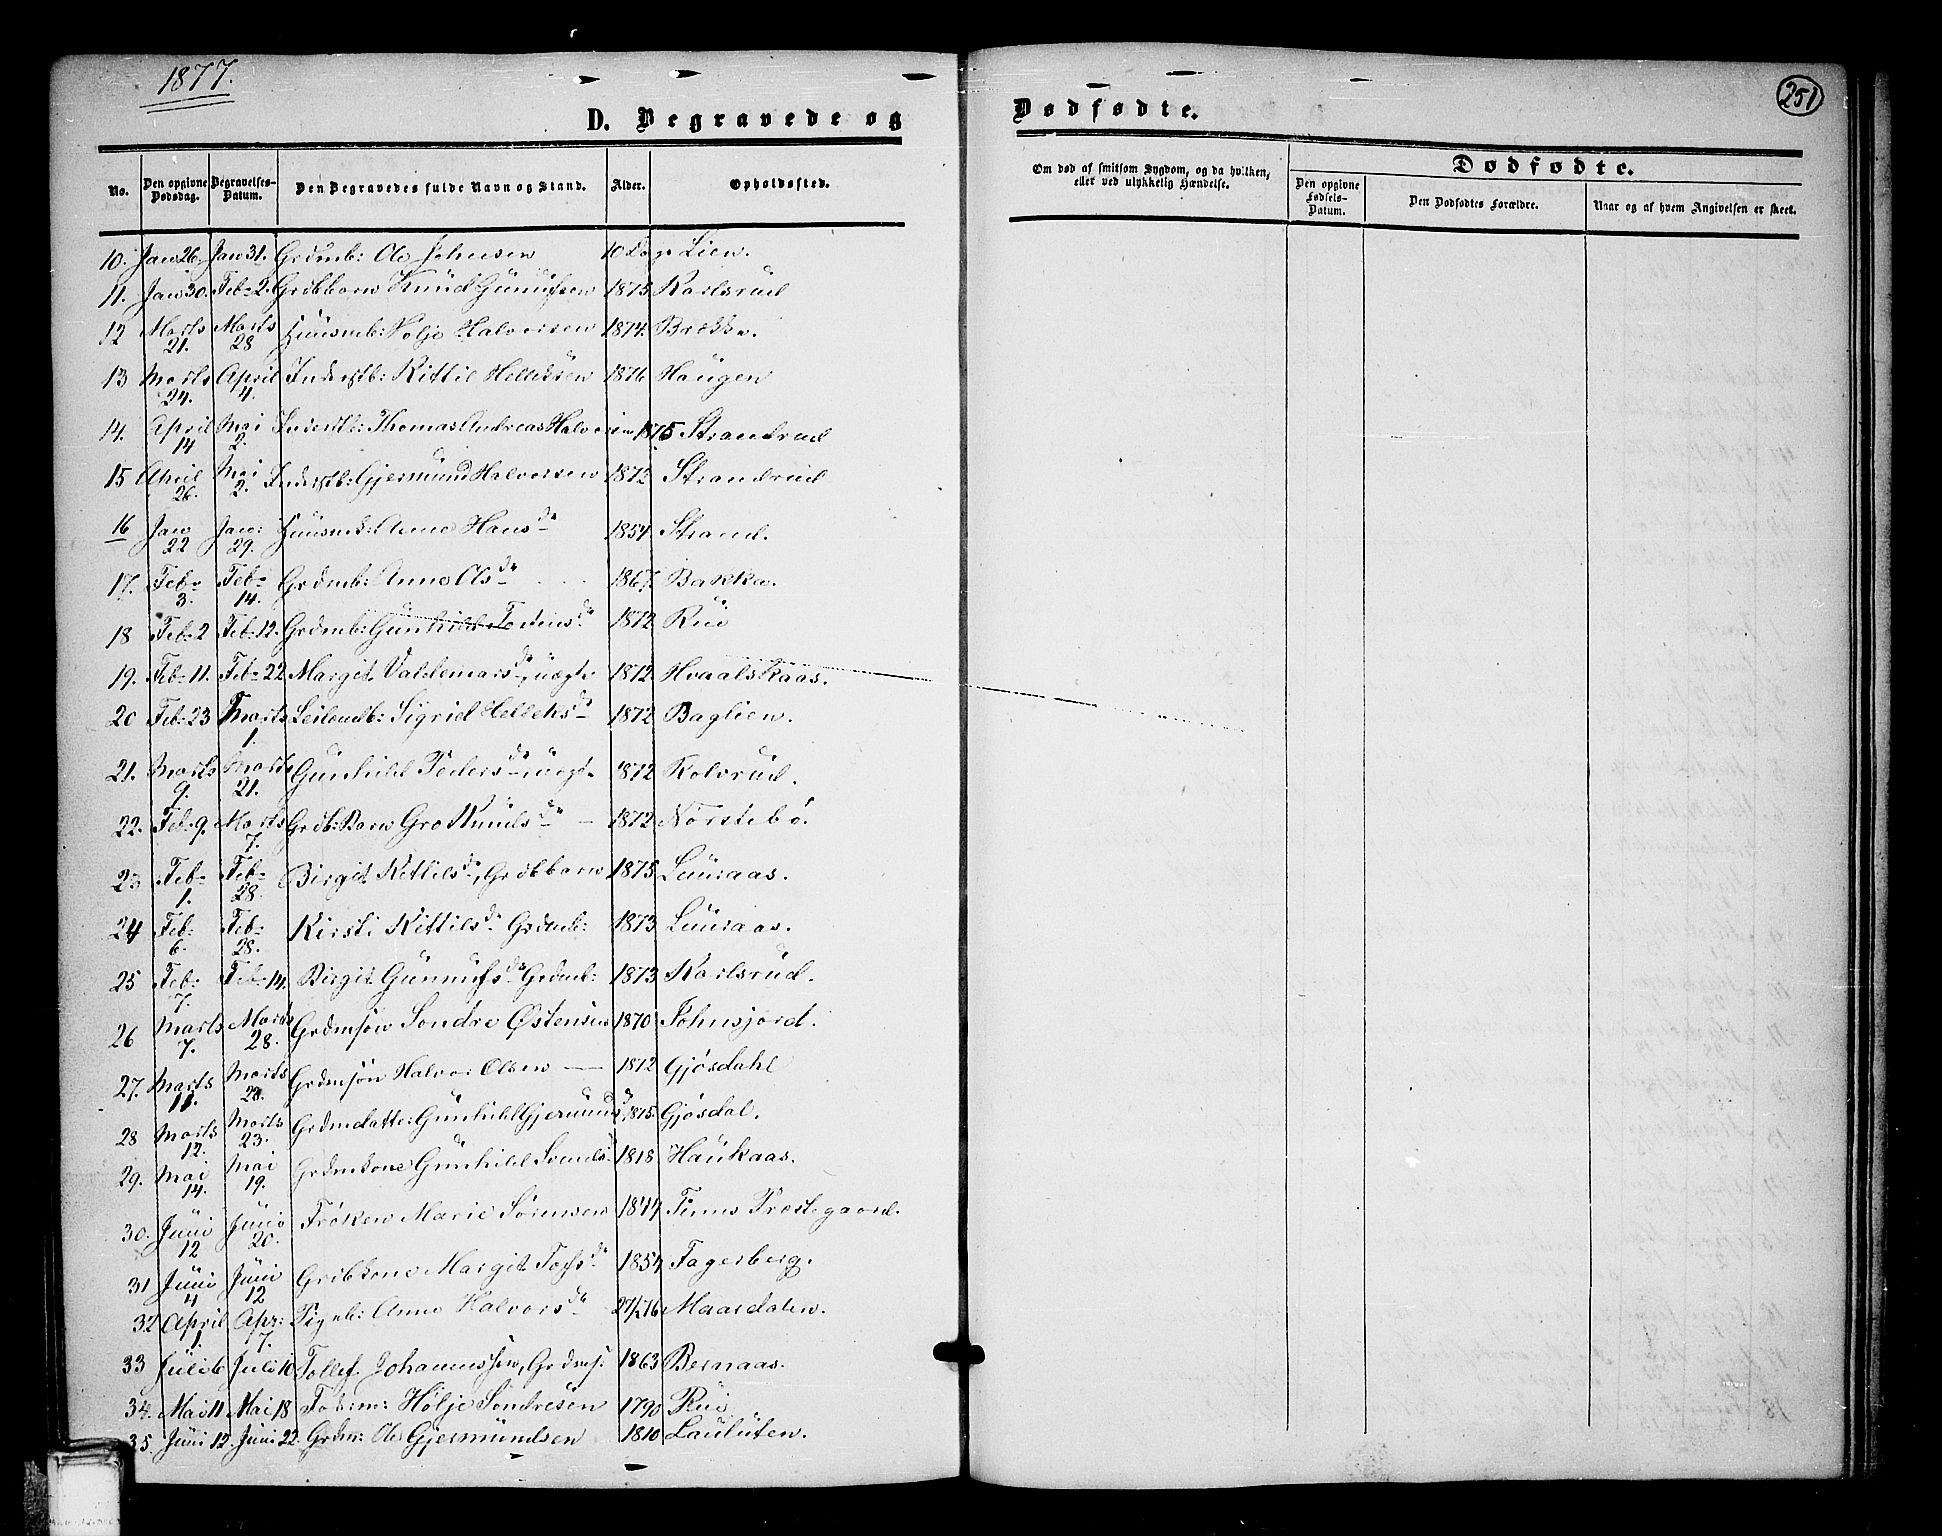 1877.
251
D. Begravede og
Dødfødte.
No.
Den opgivne Dødsdag.
Begravelses-Datum.
Den Begravedes fulde Navn og Stand.
Alder.
Opholdssted.
Om død af smitsom Sygdom, og da hvilken, eller ved ulykkelig Hændelse.
Dødfødte.
Den opgivne Fødsels-Datum.
Den Dødfødtes Forældre.
Naar og af hvem Angivelsen er skeet.
10. Jan 26. Jan 31. Grdmb: Ole Johnsen 10 Dage Lien.
11. Jan 30. Feb. 2. Grdbbarn Knud Gunnufsen 1875 Karlsrud
12 Marts 21. Marts 28 Huusmb: Holje Halvorsen 1874. Brekke.
13 Marts 24. April 4. Inderstb: Kittil Helleksen 1876 Haugen
14. April 14 Mai 2. Inderstb: Thomas Andreas Halvorsen 1875 Strandrud
15 April 26. Mai 2. Inderstb: Gjermund Halvorsen 1872 Strandrud
16 Jan 22 Jan: 29. Huusmd: Anne Hansda 1854 Strand.
17. Feb. 3. Feb. 14. Grdmb: Anne Olsda 1867. Bakka.
18 Feb. 2 Feb. 12. Grdmb: Gunhild Tostensda 1872 Rui
19. Feb. 11. Feb. 22 Margit Valdemarsda, uægte 1872 Hvaalskaas.
20 Feb. 23 Marts 1. Leilendb: Sigrid Helleksda 1872 Baglien.
21. Marts 9. Marts 21. Gunhild Pedersda uægte 1872 Kolvrud.
22. Feb. 9. Marts 7. Grdb: Barn Gro Knudsda 1872 Nørstebø.
23 Feb. 1. Feb. 28. Birgit Kittilsda, Grdbbarn 1875 Luuraas.
24 Feb: 6. Feb: 28. Kirsti Kittilsda Grdmb: 1873 Luuraas.
25 Feb: 7. Feb. 14. Birgit Gunnufsda Grdmb: 1873 Karlsrud.
26 Marts 7. Marts 28. Grdmsøn Sondre Østensen 1870 Johnsjord.
27. Marts 11. Marts 28. Grdmsøn Halvor Olsen — 1872 Gjøsdahl
28 Marts 12. Marts 23. Grdmdatter: Gunhild Gjermundsd 1875. Gjøsdal.
29. Mai 14. Mai 19. Grdmkone Gunhild Svends 1818 Haukaas.
30. Juni 12 Juni 20. Frøken Marie Sørensen 1844 Tinns Præstegaard.
31 Juni 4 Juni 12 Grdbkone Margit Tovsda 1854 Fagerberg.
32 April 1. Apr: 7. Pigeb: Anne Halvorsda 27/5 76 Maardalen.
33 Juli 6 Juli 10 Tollef Johannessen, Grdmf: 1863 Bernaas.
34. Mai 11 Mai 18 Føderm: Hølje Sondresen 1790 Rui.
35. Juni 12. Juni 22. Grdm: Ole Gjermundsen 1810 Lauluten.